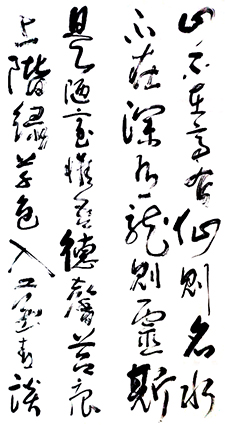 山不在高有仙則名水
不在深有龍則靈斯
是陋室惟吾德馨苔痕
上階綠草色入簾青談